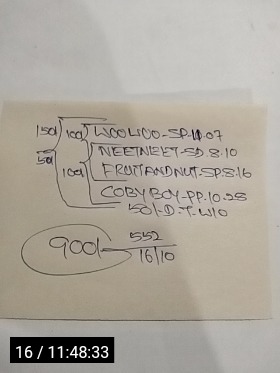 150/ 100/ WOOWOO-SP.11.07
50/ NEETNEET-SD.8.10
100/ FRUITANDNUT-SP.8.16
COBY BOY-PP.10.28
50/-D.T.W/O
900/- 552
16/10
16 / 11:48:33